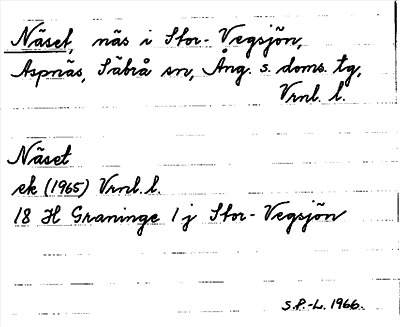 Näset, näs i Stor-Vegsjön,
Aspnäs, Säbrå sn, Ång. s. doms. tg,
Vrnl. l.
Näset
ek (1965) Vrnl. l.
18 H Graninge 1 j Stor-Vegsjön
S.P.-L. 1966.